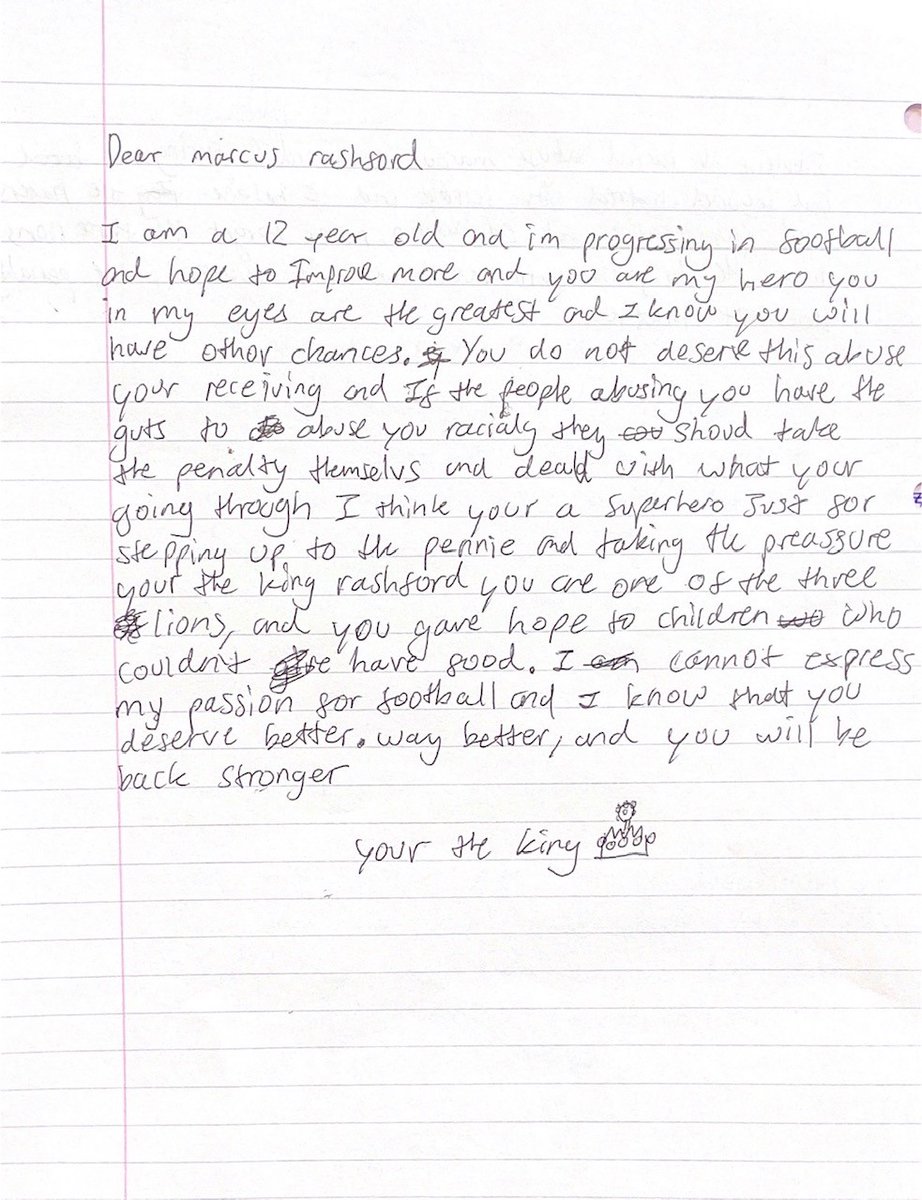 Dear marcus rashford
I am a 12 year old and im progressing in football
and hope to Improve more and you are my hero you
in my eyes are the greatest and I know you will
have other chances. You do not deserve this abuse
your receiving and If the people abusing you have the
guts to abuse you racialy they shoud take
the penalty themselvs and deald with what your
going through I think your a superhero Just for
stepping up to the pennie and taking the preassure
your the king rashford you are one of the three
lions, and you gave hope to children who
couldn't have food. I cannot express
my passion for football and I know that you
deserve better. way better, and you will be
back stronger
your the king